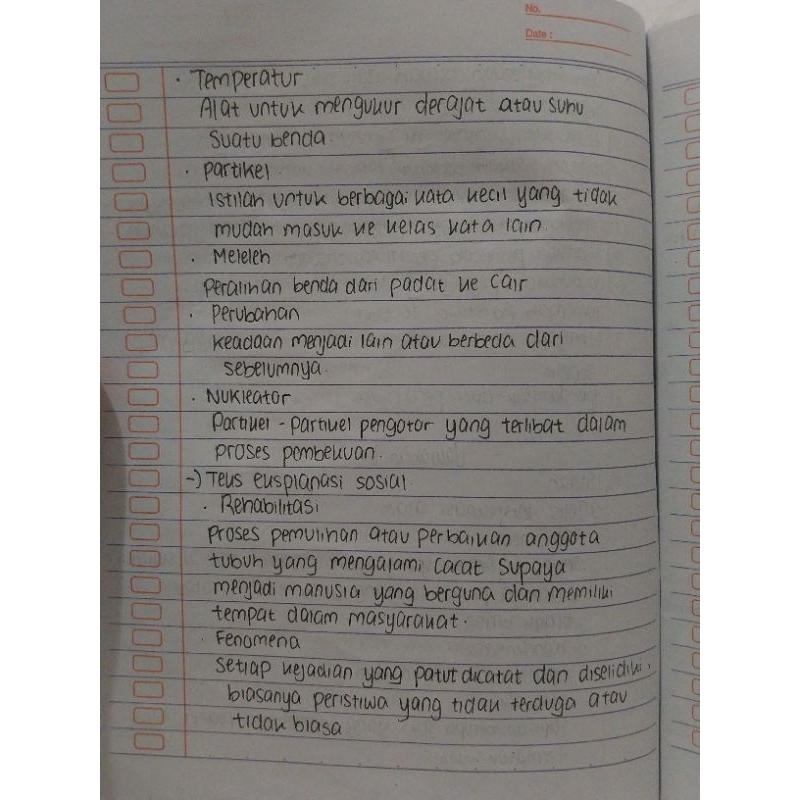 No.
Date :
· Temperatur
Alat untuk mengukur derajat atau suhu
suatu benda.
· partikel
istilah untuk berbagai kata kecil yang tidak
mudah masuk ke kelas kata lain.
· Meleleh
peralihan benda dari padat ke cair
· Perubahan
keadaan menjadi lain atau berbeda dari
sebelumnya.
· Nukleator
Partikel - partikel pengotor yang terlibat dalam
proses pembekuan.
-) Teks eksplanasi sosial
· Rehabilitasi
proses pemulihan atau perbaikan anggota
tubuh yang mengalami cacat supaya
menjadi manusia yang berguna dan memiliki
tempat dalam masyarakat.
· Fenomena
setiap kejadian yang patut dicatat dan diselidiki,
biasanya peristiwa yang tidak terduga atau
tidak biasa